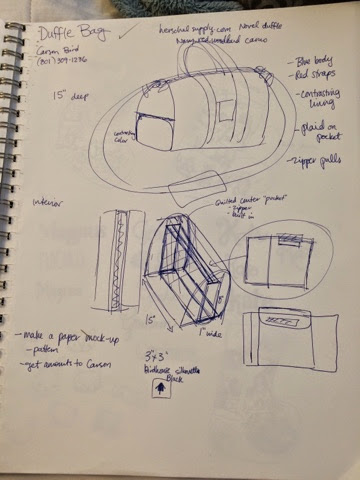 Duffle Bag
Carson Bird
herschelsupply.com Novel duffle
Navy Red woodland camo
- Blue body
- Red straps
- contrasting lining
- plaid on pocket
- zipper pulls
15" deep
contrasting color
interior
Quilted center "pocket"
- zipper
- built in
15"
8"
1" wide
- make a paper mock-up
- pattern
- get amounts to Carson
3"x3"
Birdhouse silhouette
Black